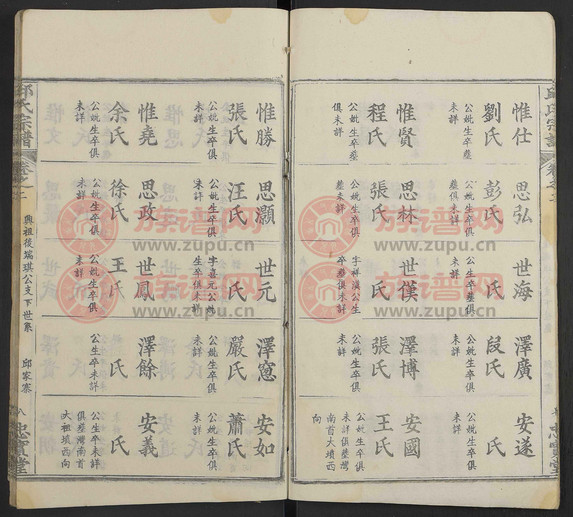 惟仕
劉氏
公妣生卒塟
未詳
惟賢
程氏
公妣生卒塟
俱未詳
思弘
彭氏
公妣生卒
塟俱未詳
思林
張氏
公妣生卒俱
塟未詳
世海
氏
公生卒塟俱
未詳
世僕
氏
字祥漢公生
卒塟俱未詳
澤廣
段氏
公妣生卒俱
未詳
澤博
張氏
公妣生卒俱
未詳
安遂
氏
公生卒俱
未詳
安國
王氏
公妣生卒
未詳俱塟灣
南首大墳西
向
惟勝
張氏
公妣生卒俱
未詳
惟堯
余氏
公妣生卒俱
未詳
思灝
汪氏
公妣生卒俱
未詳
思政
徐氏
公妣生卒俱
未詳
世元
氏
字喜元公妣
生卒俱未詳
世鳳
王氏
公妣生卒俱
未詳
澤寬
嚴氏
公妣生卒俱
未詳
澤餘
氏
公生卒未詳
安如
蕭氏
公妣生卒俱
未詳
安義
氏
公生卒未詳
俱塟灣南首
大祖墳西向
邱氏宗譜
卷之二
興祖後瑞琪公支下世系
邱家寨
八
忠實堂
族普网
www.zupu.cn
族普网
www.zupu.cn
族普网
www.zupu.cn
族普网
www.zupu.cn